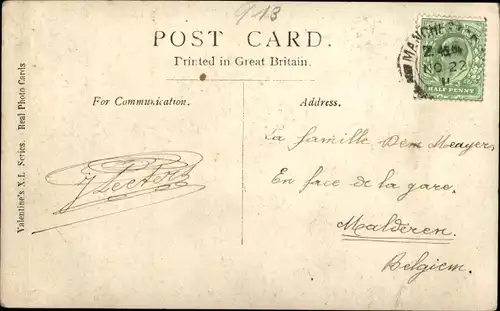 913
POST CARD.
Printed in Great Britain.
MANCHESTER
NO 22
11
HALF PENNY
For Communication.
Address.
Valentine's X.L Series. Real Photo Cards
La famille Dem Meayer
En face de la gare.
Malderen.
Belgiem.